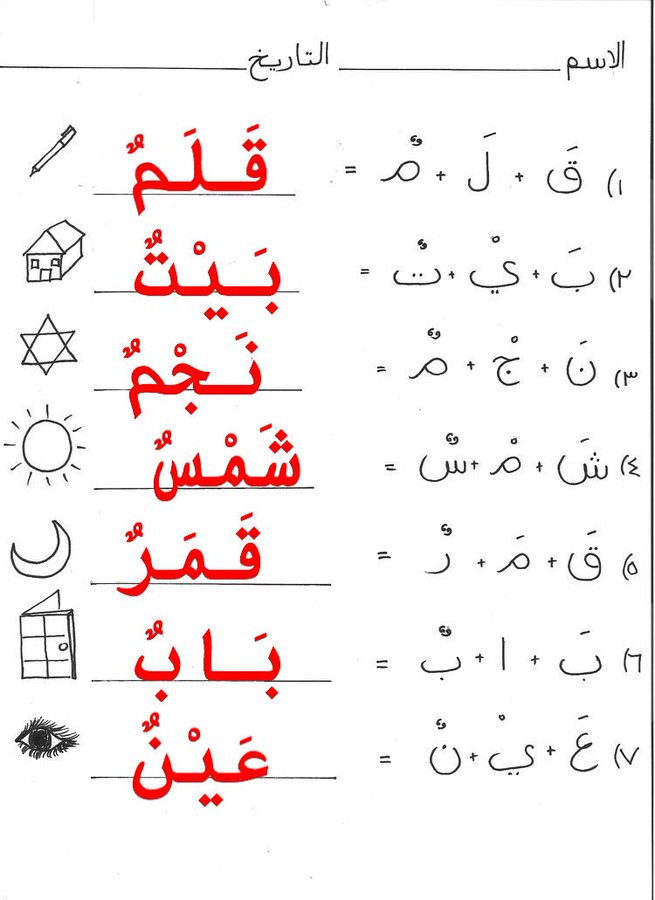 الاسم ____________ التاريخ ____________
١) قَ + لَ + مٌ = قَلَمٌ
٢) بَ + يْ + تٌ = بَيْتٌ
٣) نَ + جْ + مٌ = نَجْمٌ
٤) شَ + مْ + سٌ = شَمْسٌ
٥) قَ + مَ + رٌ = قَمَرٌ
٦) بَ + ا + بٌ = بَابٌ
٧) عَ + يْ + نٌ = عَيْنٌ